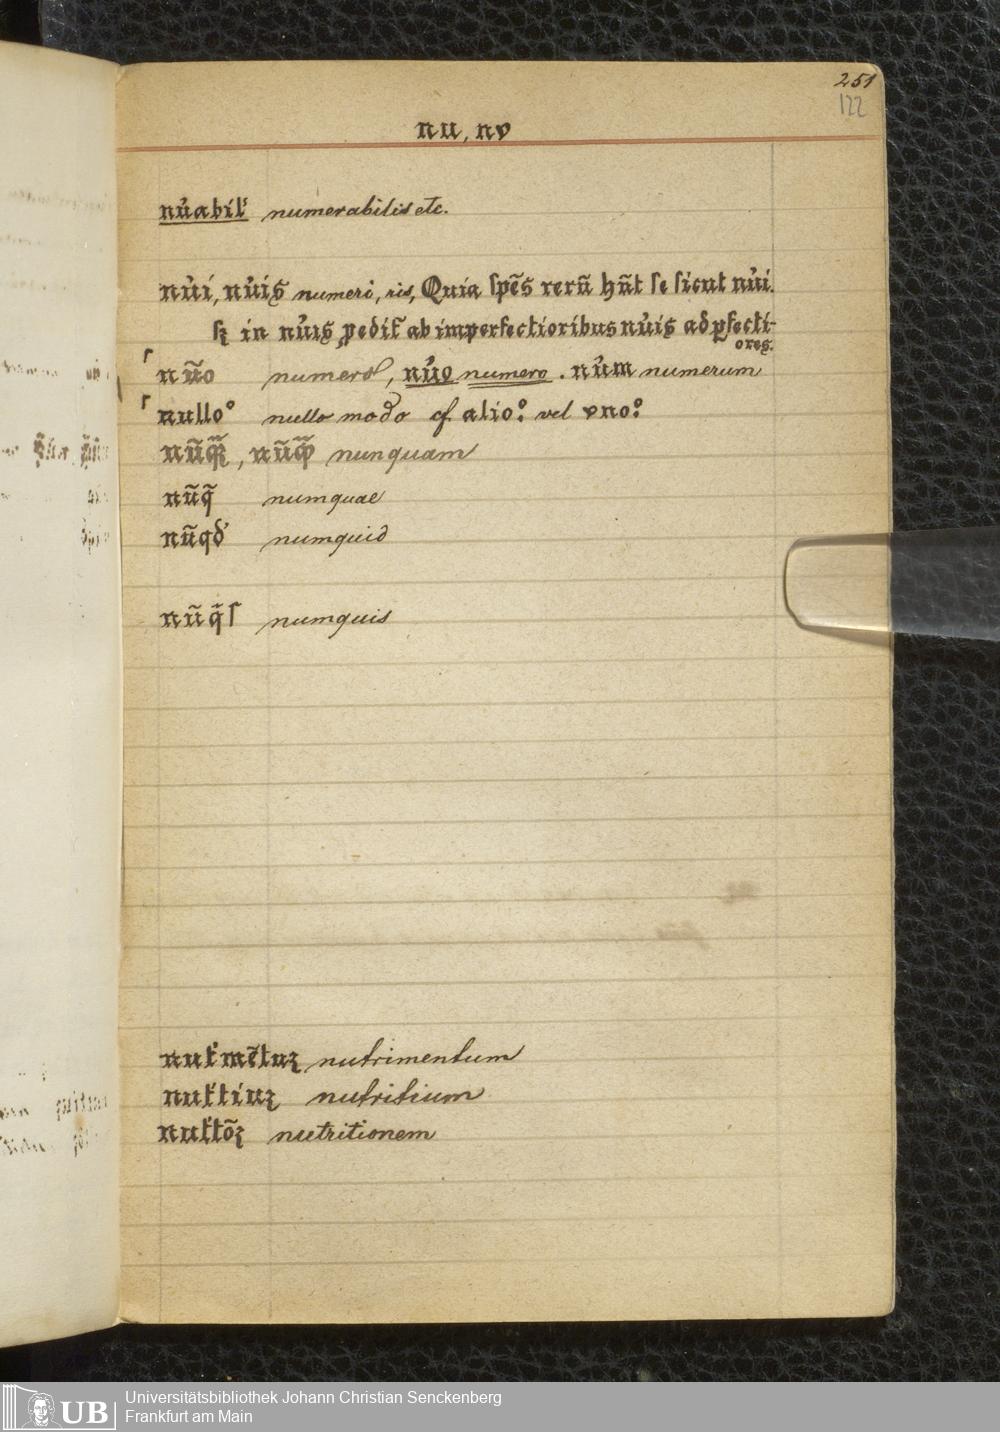 251
122
nu, nv
nu̓abil̓ numerabilis etc.
nu̓i, nu̓iꝫ numeri, ris, Quia spēs rerū hñt se sicut nu̓i.
sꝫ in nu̓iꝫ ꝓcedit̃ ab imperfectioribus nu̓iꝫ ad ꝑfecti-
oreꝫ.
nūo numero, nu̓o numero. nu̓m numerum
nullo° nullo modo cf. alio°: vel vno°:
nunquam
nūq̄ numquae
nūqd̓ numquid
nūq̓s numquis
nut̓mētuꝫ nutrimentum
nut̓tiuꝫ nutritium
nut̓tōꝫ nutritionem
Universitätsbibliothek Johann Christian Senckenberg
Frankfurt am Main
UB